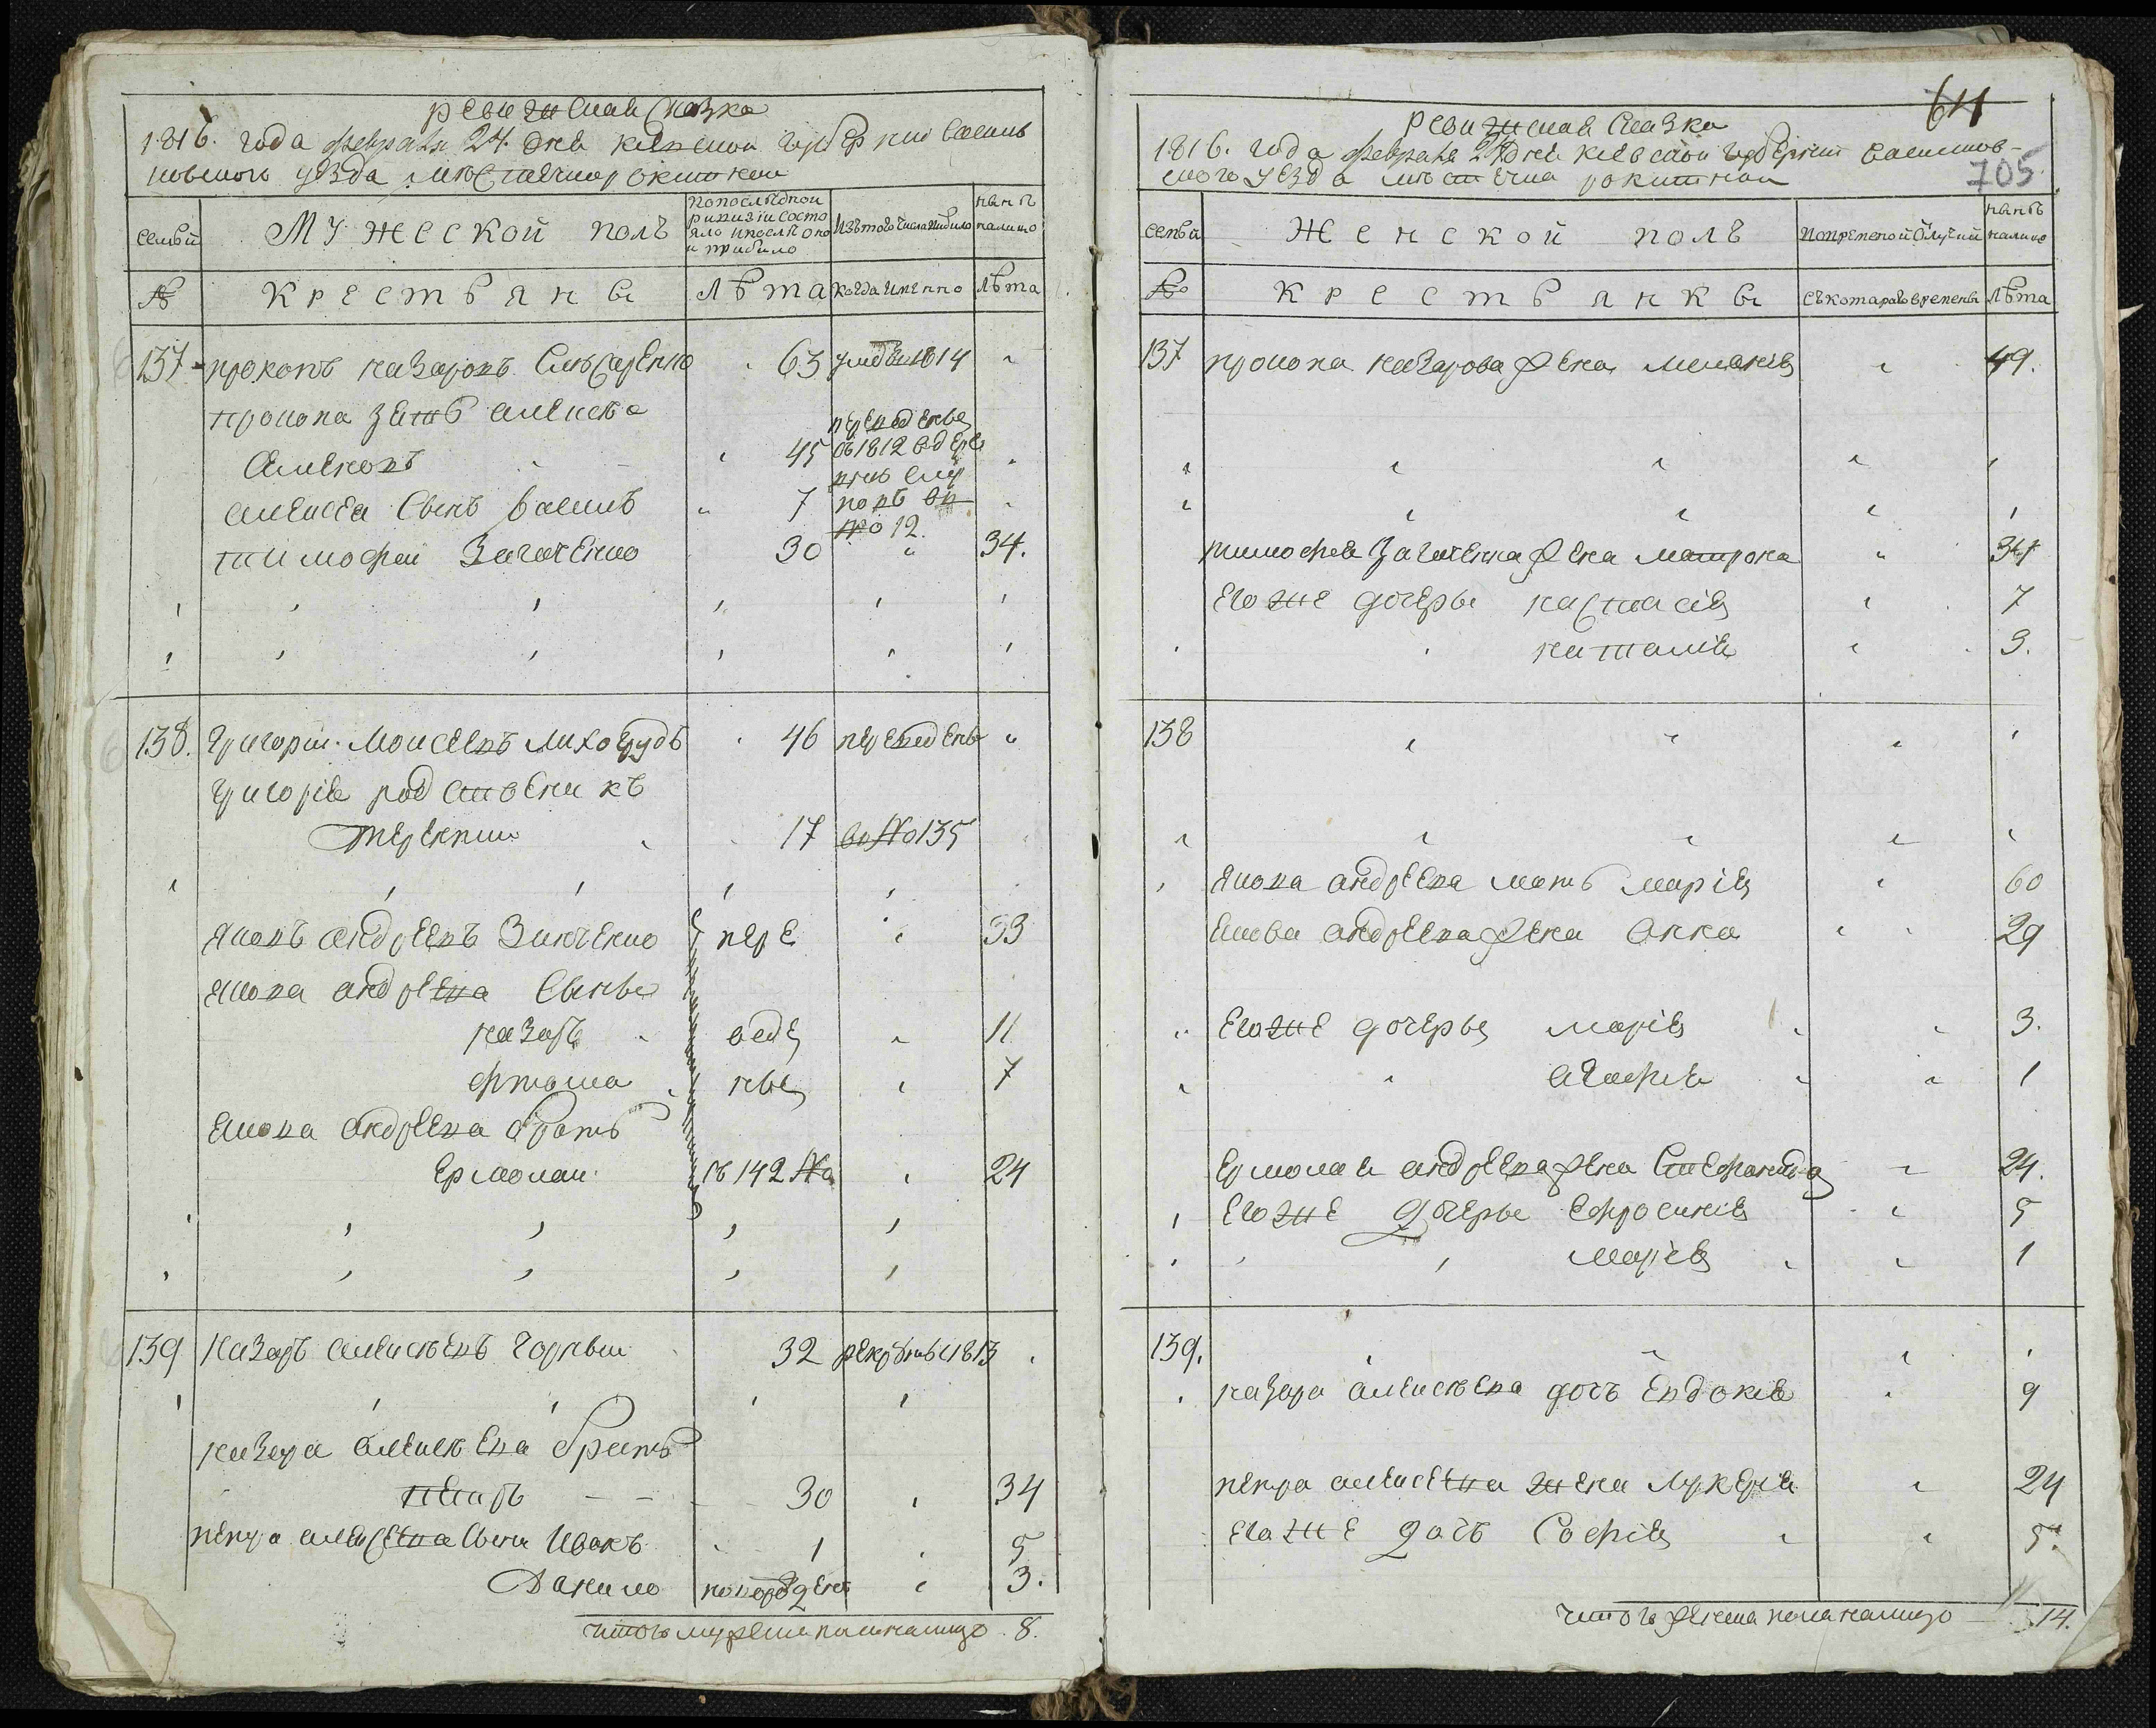 ревизская Сказка
1816. года февраля 24. дня киевской губернии василь
ковского уезда местечка рокитной
семьи
Мужеской полъ
попоследной ривизiи состо яло и после оно и прибыло
Изътогочиславыбыло
нынѣ налицо
№
Крестьяне
Лѣта
когда имянно
Лѣта
137 прокопъ назаровъ Слюсаренко 63 умре 1814
прокопа зять алексѣ
Алексеевъ 45 переведены въ 1812 в дерев
алексея Сынъ василь 7
№ 12.
тимофей Загаченко 30 34.
138. Григорий Моисеевъ Лихогрудъ 46 переведенъ
Григорiя родственикъ
Терентий 17 въ № 135
Яковъ андреевъ Зинченко пере 33
Якова андреева Сынья
назаръ веде 11
фтома ны 7
Якова андреева братъ
Ермолай съ 142 № 24
139 Назаръ алексѣевъ Чорный 32 рекрутъ 1813
назара алексѣева братъ
петръ 30 34
петра алексеева Сыны Иванъ 1 5
Данило новорожденъ 3.
итого мужеска пола налицо 8.
64
705
ревизская Сказка
1816. года февраля 24 дня киевской губернии василков-
ского уезда местечка рокитной
семьи
Женской полъ
Повременной отлучкѣ
нынѣ налицо
№
Крестьянки
Съкотарагоевремены
Лѣта
137 прокопа назарова жена меланiя 49.
тимофея Загаченка жена матрона 34
Егоже дочеры настасiя 7
наталiя 3.
138
Якова андреева мать марiя 60
Якова андреева жена Анна 29
Егоже дочеры марiя 3.
Агафiя 1
Ермолая андреева жена Стефанида 24.
Егоже дочеры Ефросинiя 5
Марiя 1
139.
назара алексѣева дочъ Евдокiя 9
петра алексеева жена Лукерiя 24
Егоже дочъ Софiя 5.
итого женска пола налицо 14.